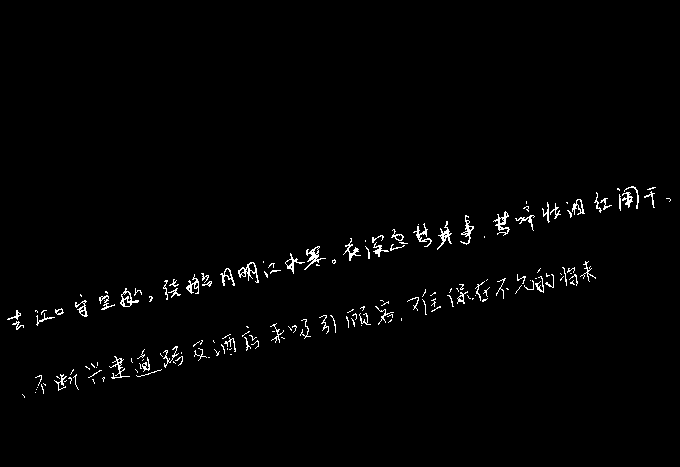 去江口守空船。绕船月明江水寒。夜深忽梦少年事，梦啼妆泪红阑干。
、不断兴建道路及酒店来吸引顾客，难保在不久的将来